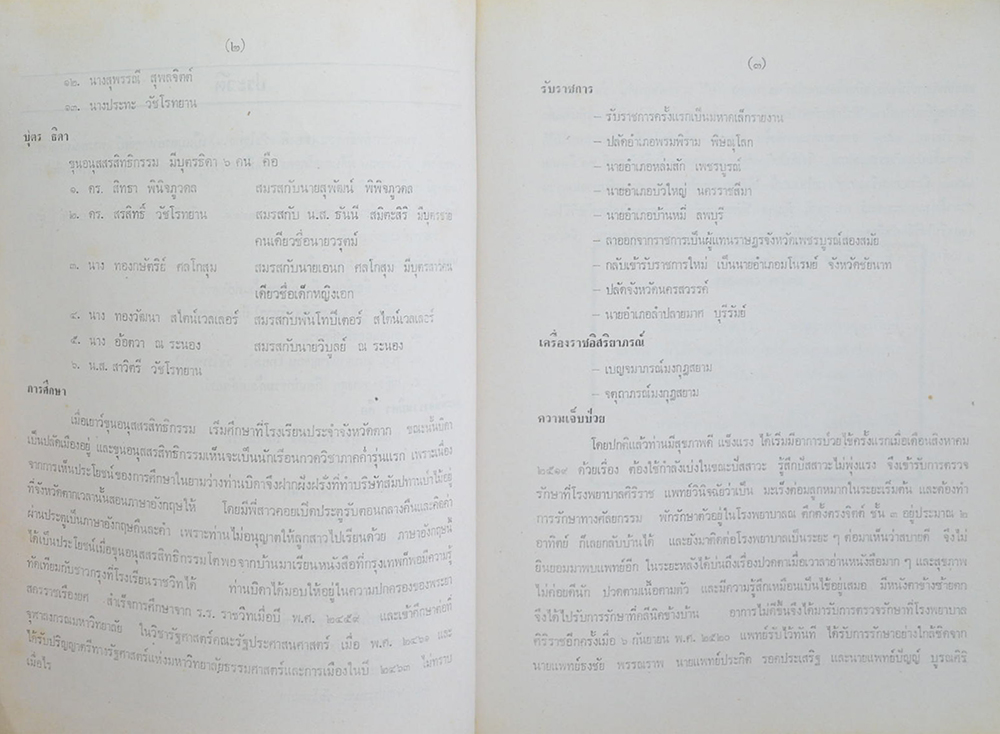 (๒)
๑๒. นางสุพรรณี สุพลจิตต์
๑๓. นางประทะ วัชโรทยาน
บุตร ธิดา
ขุนอนุสสรสิทธิกรรม มีบุตรธิดา ๖ คน คือ
๑. ดร. สิทธา พินิจภูวดล สมรสกับนายสุพัฒน์ พินิจภูวดล
๒. ดร. สรสิทธิ์ วัชโรทยาน สมรสกับ น.ส. ธันนี สมิตะสิริ มีบุตรชาย
คนเดียวชื่อนายวรุตม์
๓. นาง ทองกษัตริย์ ศลโกสุม สมรสกับนายเอนก ศลโกสุม มีบุตรสาวคน
เดียวชื่อเด็กหญิงเอก
๔. นาง ทองวัฒนา สไตน์เวลเลอร์ สมรสกับพันโทปีเตอร์ สไตน์เวลเลอร์
๕. นาง อ้อตวา ณ ระนอง สมรสกับนายวิบูลย์ ณ ระนอง
๖. น.ส. สาวิตรี วัชโรทยาน
การศึกษา
เมื่อเยาว์ขุนอนุสสรสิทธิกรรม เริ่มศึกษาที่โรงเรียนประจำจังหวัดตาก ขณะนั้นบิดา
เป็นปลัดเมืองอยู่ และขุนอนุสสรสิทธิกรรมเห็นจะเป็นนักเรียนกวดวิชาภาคค่ำรุ่นแรก เพราะเนื่อง
จากการเห็นประโยชน์ของการศึกษาในยามว่างท่านบิดาจึงฝากฝั่งฝรั่งที่ทำบริษัทสัมปทานป่าไม้อยู่
ที่จังหวัดตากเวลานั้นสอนภาษาอังกฤษให้ โดยมีพี่สาวคอยเปิดประตูรับตอนกลางคืนและคิดค่า
ผ่านประตูเป็นภาษาอังกฤษคืนละคำ เพราะท่านไม่อนุญาตให้ลูกสาวไปเรียนด้วย ภาษาอังกฤษนี้
ได้เป็นประโยชน์เมื่อขุนอนุสสรสิทธิกรรมได้พอจากบ้านมาเรียนหนังสือที่กรุงเทพก็พอมีความรู้
ทัดเทียมกับชาวกรุงที่โรงเรียนราชวิทได้ ท่านบิดาได้มอบให้อยู่ในความปกครองของพระยา
สำเร็จการศึกษาจาก ร.ร. ราชวิทเมื่อปี พ.ศ. ๒๔๕๙ และเข้าศึกษาต่อที่
จุฬาลงกรณมหาวิทยาลัย ในวิชารัฐศาสตร์คณะรัฐประศาสนศาสตร์ เมื่อ พ.ศ. ๒๔๖๑ และ
ได้รับปริญญาตรีทางรัฐศาสตร์แห่งมหาวิทยาลัยธรรมศาสตร์และการเมืองในปี ๒๔๖๓ ไม่ทราบ
เมื่อไร
(๓)
รับราชการ
– รับราชการครั้งแรกเป็นมหาดเล็กรายงาน
– ปลัดอำเภอพรมพิราม พิษณุโลก
– นายอำเภอหล่มสัก เพชรบูรณ์
– นายอำเภอบัวใหญ่ นครราชสีมา
– นายอำเภอบ้านหมี่ ลพบุรี
– ลาออกจากราชการเป็นผู้แทนราษฎรจังหวัดเพชรบูรณ์สองสมัย
– กลับเข้ารับราชการใหม่ เป็นนายอำเภอมโนรมย์ จังหวัดชัยนาท
– ปลัดจังหวัดนครสวรรค์
– นายอำเภอลำปลายมาศ บุรีรัมย์
เครื่องราชอิสริยาภรณ์
– เบญจมาภรณ์มงกุฎสยาม
– จตุถาภรณ์มงกุฎสยาม
ความเจ็บป่วย
โดยปกติแล้วท่านมีสุขภาพดี แข็งแรง ได้เริ่มมีอาการป่วยไข้ครั้งแรกเมื่อเดือนสิงหาคม
๒๕๑๙ ด้วยเรื่อง ต้องใช้กำลังเบ่งในขณะปัสสาวะ รู้สึกปัสสาวะไม่พุ่งแรง จึงเข้ารับการตรวจ
รักษาที่โรงพยาบาลศิริราช แพทย์วินิจฉัยว่าเป็น มะเร็งต่อมลูกหมากในระยะเริ่มต้น และต้องทำ
การรักษาทางศัลยกรรม พักรักษาตัวอยู่ในโรงพยาบาลณ ตึกตั้งตรงจิตต์ ชั้น ๓ อยู่ประมาณ ๒
อาทิตย์ ก็เลยกลับบ้านได้ และยังมาติดต่อโรงพยาบาลเป็นระยะ ๆ ต่อมาเห็นว่าสบายดี จึงไม่
ยินยอมมาพบแพทย์อีก ในระยะหลังได้บ่นถึงเรื่องปวดตาเมื่อเวลาอ่านหนังสือมาก ๆ และสุขภาพ
ไม่ค่อยดีนัก ปวดตามเนื้อตามตัว และมีความรู้สึกเหมือนเป็นไข้อยู่เสมอ มีหนังตาข้างซ้ายตก
จึงได้ไปรับการรักษาที่คลีนิคข้างบ้าน อาการไม่ดีขึ้นจึงได้มารับการตรวจรักษาที่โรงพยาบาล
ศิริราชอีกครั้งเมื่อ ๖ กันยายน พ.ศ. ๒๕๒๐ แพทย์รับไว้ทันที ได้รับการรักษาอย่างใกล้ชิดจาก
นายแพทย์ธงชัย พรรณราพ นายแพทย์ประกิต รอดประเสริฐ และนายแพทย์บัญญู้ บูรณศิริ